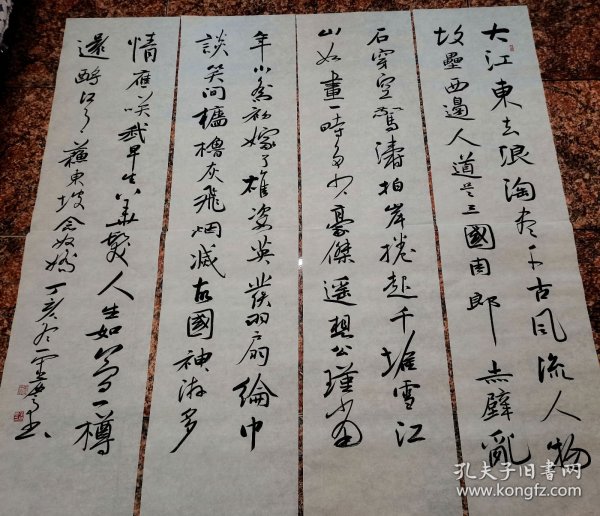 大江東去浪淘盡千古風流人物
故壘西邊人道是三國周郎赤壁亂
石穿空驚濤拍岸捲起千堆雪江
山如畫一時多少豪傑遥想公瑾當
年小喬初嫁了雄姿英發羽扇綸巾
談笑間檣櫓灰飛烟滅故國神游多
情應笑我早生華髮人生如夢一樽
還酹江月蘇東坡念奴嬌丁亥冬書
孔夫子旧书网
www.kongfz.com